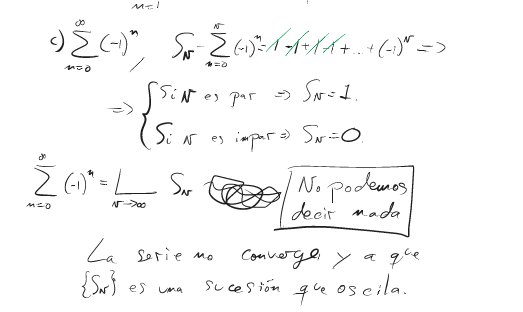 n=1
c) ∑_{n=0}^{∞} (-1)^n, S_N = ∑_{n=0}^{N} (-1)^n = 1-1+1-1+...+(-1)^N =>
=> { Si N es par => S_N = 1.
Si N es impar => S_N = 0.
∑_{n=0}^{∞} (-1)^n = L_{N→∞} S_N
No podemos
decir nada
La serie no converge, y a que
{S_N} es una sucesión que oscila.